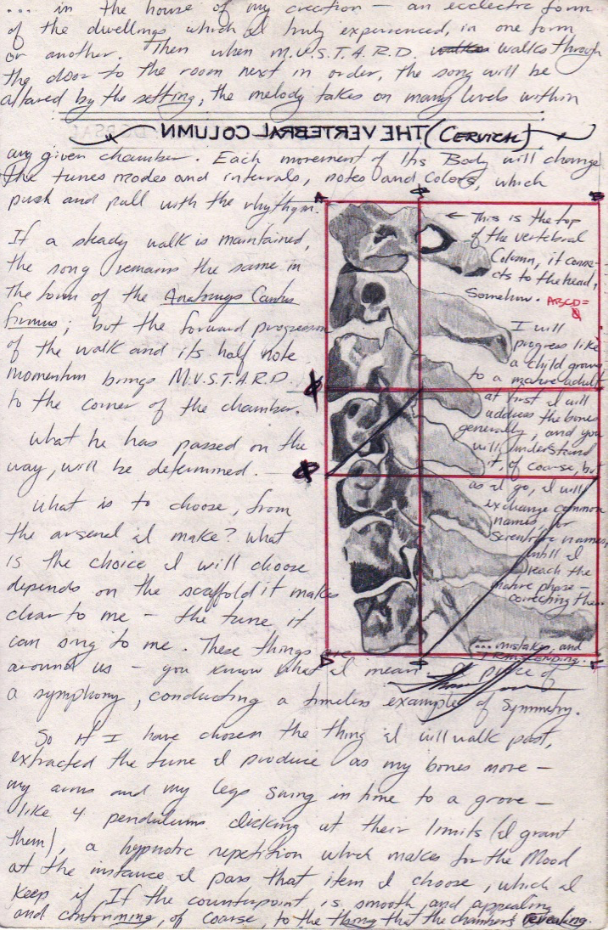 ... in the house of my creation — an eclectic form
of the dwellings which I truly experienced, in one form
or another. Then when M.U.S.T.A.R.D. walks through
the door to the room next in order, the song will be
altared by the setting, the melody takes on many levels within
THE VERTEBRAL COLUMN (CERVICH)
any given chamber. Each movement of His Body will change
the tunes modes and intervals, notes and colors, which
push and pull with the rhythm.
If a steady walk is maintained,
the song remains the same in
the form of the Cantus
firmus; but the forward progression
of the walk and its half note
momentum brings M.U.S.T.A.R.D.
to the corner of the chamber.
What he has passed on the
way, will be determined.
What is to choose, from
the arsenal I make? What
is the choice I will choose
depends on the scaffold it makes
clear to me — the tune it
can sing to me. These things are
around us — you know what I mean. A piece of
a symphony, conducting a timeless example of symmetry.
So if I have chosen the thing I will walk past,
extracted the tune I produce as my bones move —
my arms and my legs swing in time to a grove —
like 4 pendulums clicking at their limits (I grant
them), a hypnotic repetition which makes for the Mood
at the instance I pass that item I choose, which I
keep if If the counterpoint is smooth and appealing
and conforming, of coarse, to the thing that the chambers revealing.
A
B
← This is the top
of the vertebral
Column, it conne-
cts to the head,
Somehow.
ABCD=
I will
progress like
a child grows
to a mature adult
at first I will
address the bone
generally, and you
will understand
it, of coarse, but
as I go, I will
exchange common
names, for
Scientific names,
until I
reach the
mature phase —
correcting them
... mistakes, and
D
C